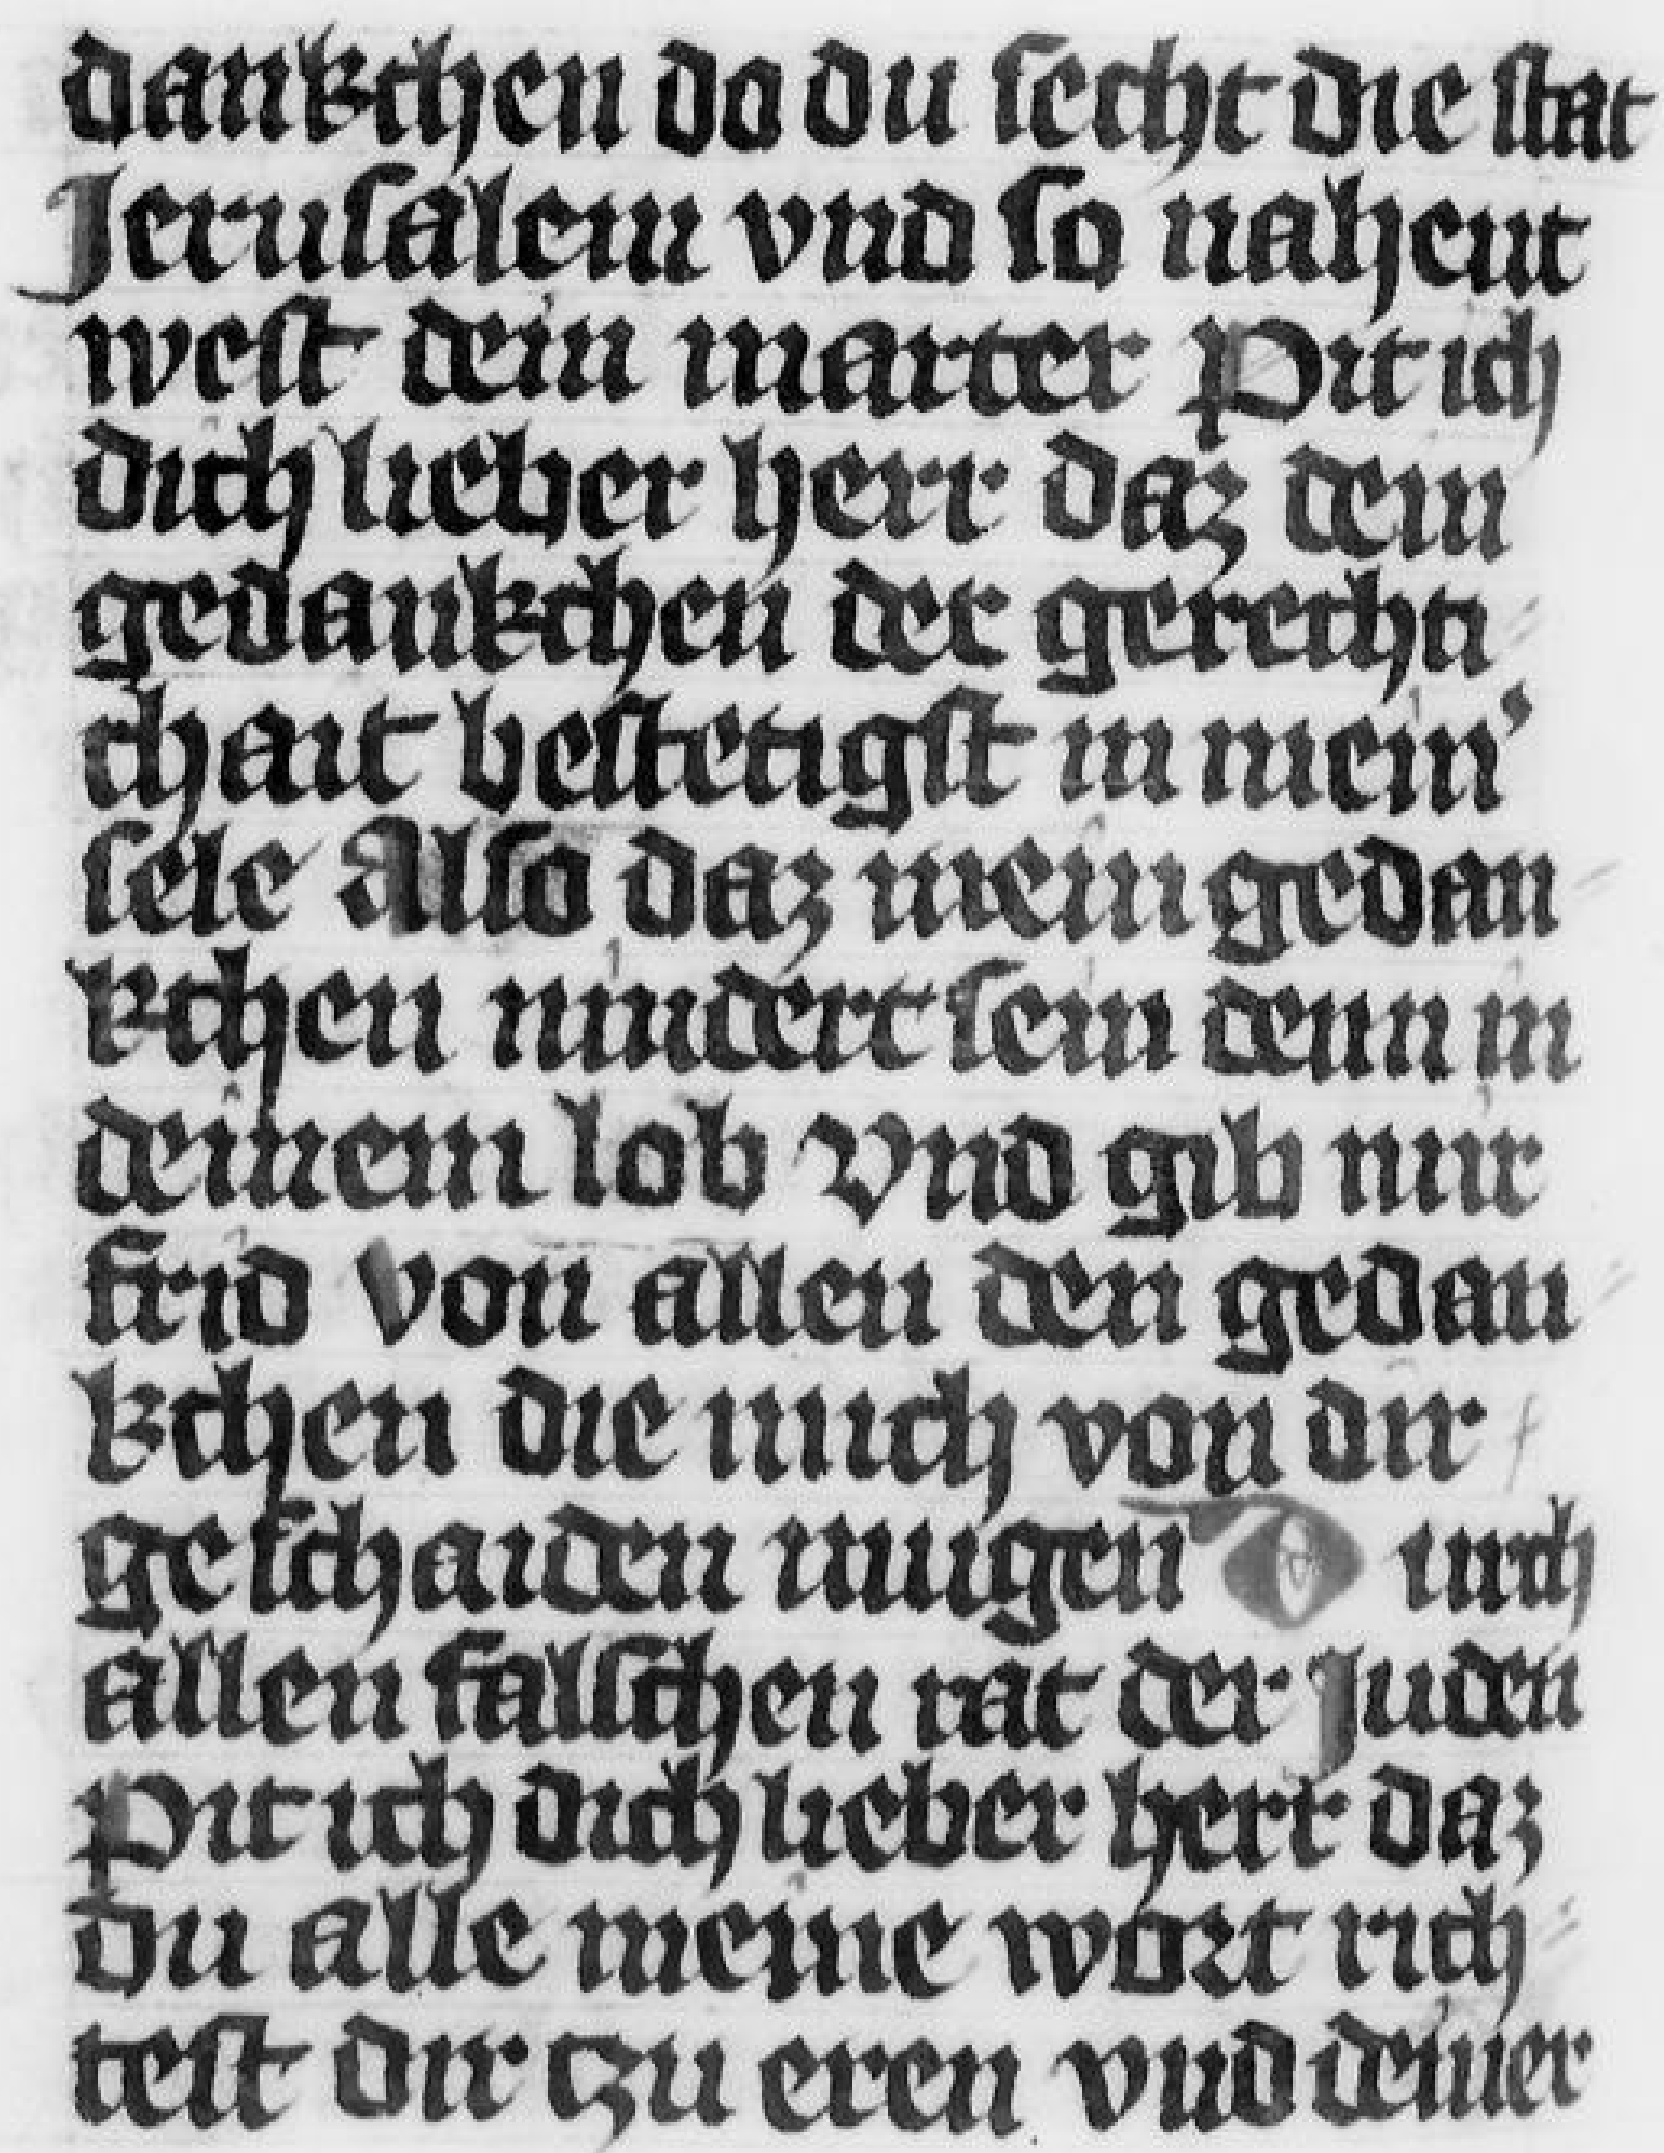 dankchen do du ſecht die ſtat
Jeruſalem vnd ſo nahent
weſt dein marter Pit ich
dich lieber herr daz dein
gedankchen der gerechti
chait beſtetigſt in mein'
ſele Alſo daz mein gedan
kchen nindert ſein denn in
deinem lob Vnd gib mir
frid von allen den gedan
kchen die mich von dir
geſchaiden mugen O umb
allen falſchen rat der Juden
Pit ich dich lieber herr daz
du alle meine wort rich
teſt dir tzu eren vnd deiner